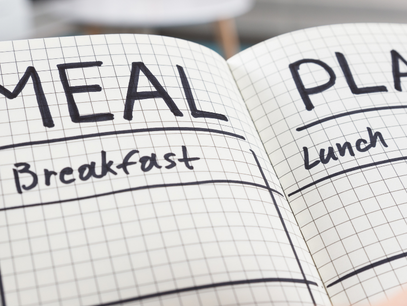 MEAL PLA
Breakfast Lunch